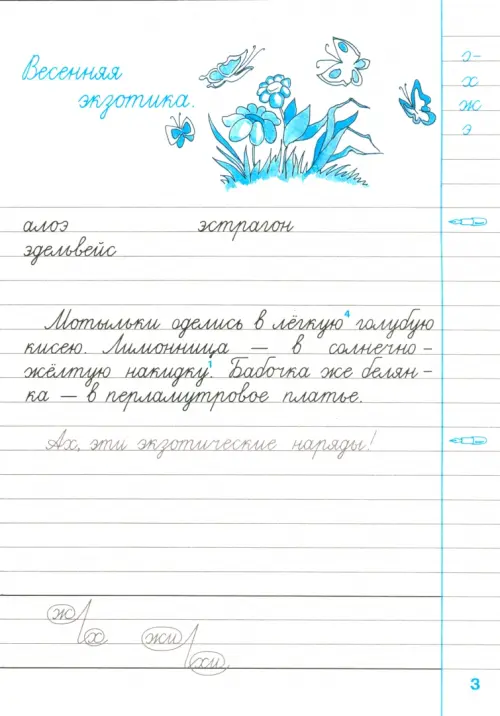 Весенняя
экзотика.
э-
х
ж
э
алоэ эстрагон
эдельвейс
Мотыльки оделись в лёгкую⁴ голубую
кисею. Лимонница — в солнечно-
жёлтую накидку¹. Бабочка же белян-
ка — в перламутровое платье.
Ах, эти экзотические наряды!
ж х жи хи
3